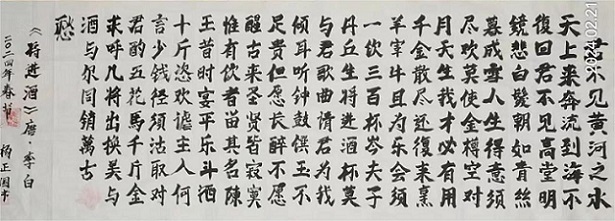 君不见黄河之水
天上来奔流到海不
复回君不见高堂明
镜悲白髮朝如青丝
暮成雪人生得意须
尽欢莫使金樽空对
月天生我才必有用
千金散尽还復来烹
羊宰牛且为乐会须
一饮三百杯岑夫子
丹丘生将进酒杯莫
与君歌曲倩君为我
倾耳听钟鼓馔玉不
足贵但愿长醉不愿
醒古来圣贤皆寂寞
惟有饮者留其名陳
王昔时宴平乐斗酒
十斤恣欢谑主人何
言少钱径须沽取对
君酌五花馬千斤金
求呼儿将出换美与
酒与尔同销萬古
愁
《将进酒》唐·李·白
二〇二四年春
杨正国书